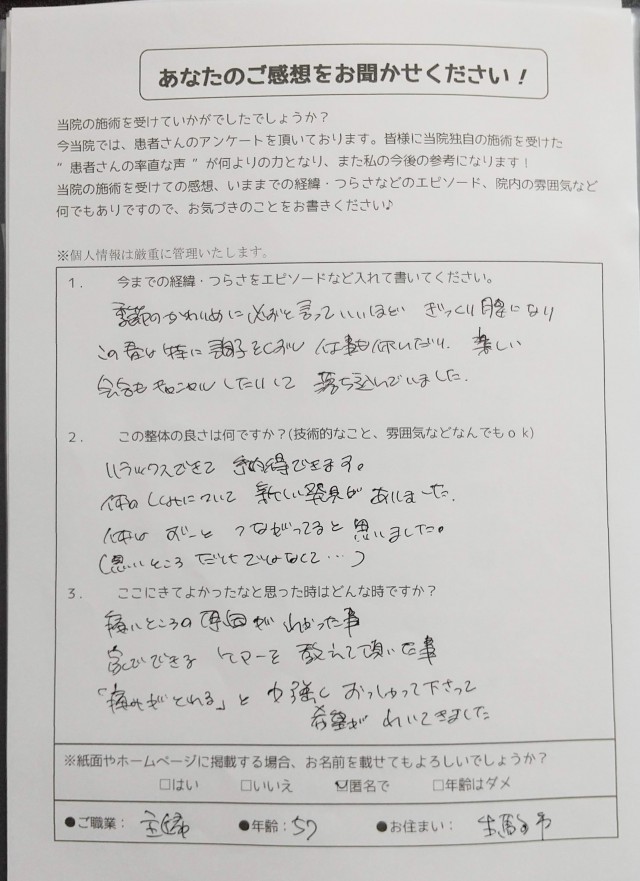 あなたのご感想をお聞かせください！
当院の施術を受けていかがでしたでしょうか？
今当院では、患者さんのアンケートを頂いております。皆様に当院独自の施術を受けた
“ 患者さんの率直な声 ”が何よりの力となり、また私の今後の参考になります！
当院の施術を受けての感想、いままでの経緯・つらさなどのエピソード、院内の雰囲気など
何でもありですので、お気づきのことをお書きください♪
※個人情報は厳重に管理いたします。
１． 今までの経緯・つらさをエピソードなど入れて書いてください。
季節のかわりめに必ずと言っていいほど ぎっくり腰になり
この春は特に調子をくずし 仕事も休んだり、楽しい
会合もキャンセルしたりして 落ち込んでいました。
２． この整体の良さは何ですか？(技術的なこと、雰囲気などなんでもｏｋ)
リラックスできて 予約得できます。
体のしくみについて 新しい発見がありました。
体は ずーと つながってると思いました。
(悪いところ だけではなくて…)
３． ここにきてよかったなと思った時はどんな時ですか？
痛いところの原因がわかった事
家でできるケアーを教えて頂いた事
「痛みがとれる」と 力強くおっしゃって下さって
希望がわいてきました
※紙面やホームページに掲載する場合、お名前を載せてもよろしいでしょうか？
□はい □いいえ ☑匿名で □年齢はダメ
●ご職業： 主婦 ●年齢：57 ●お住まい： 生駒市